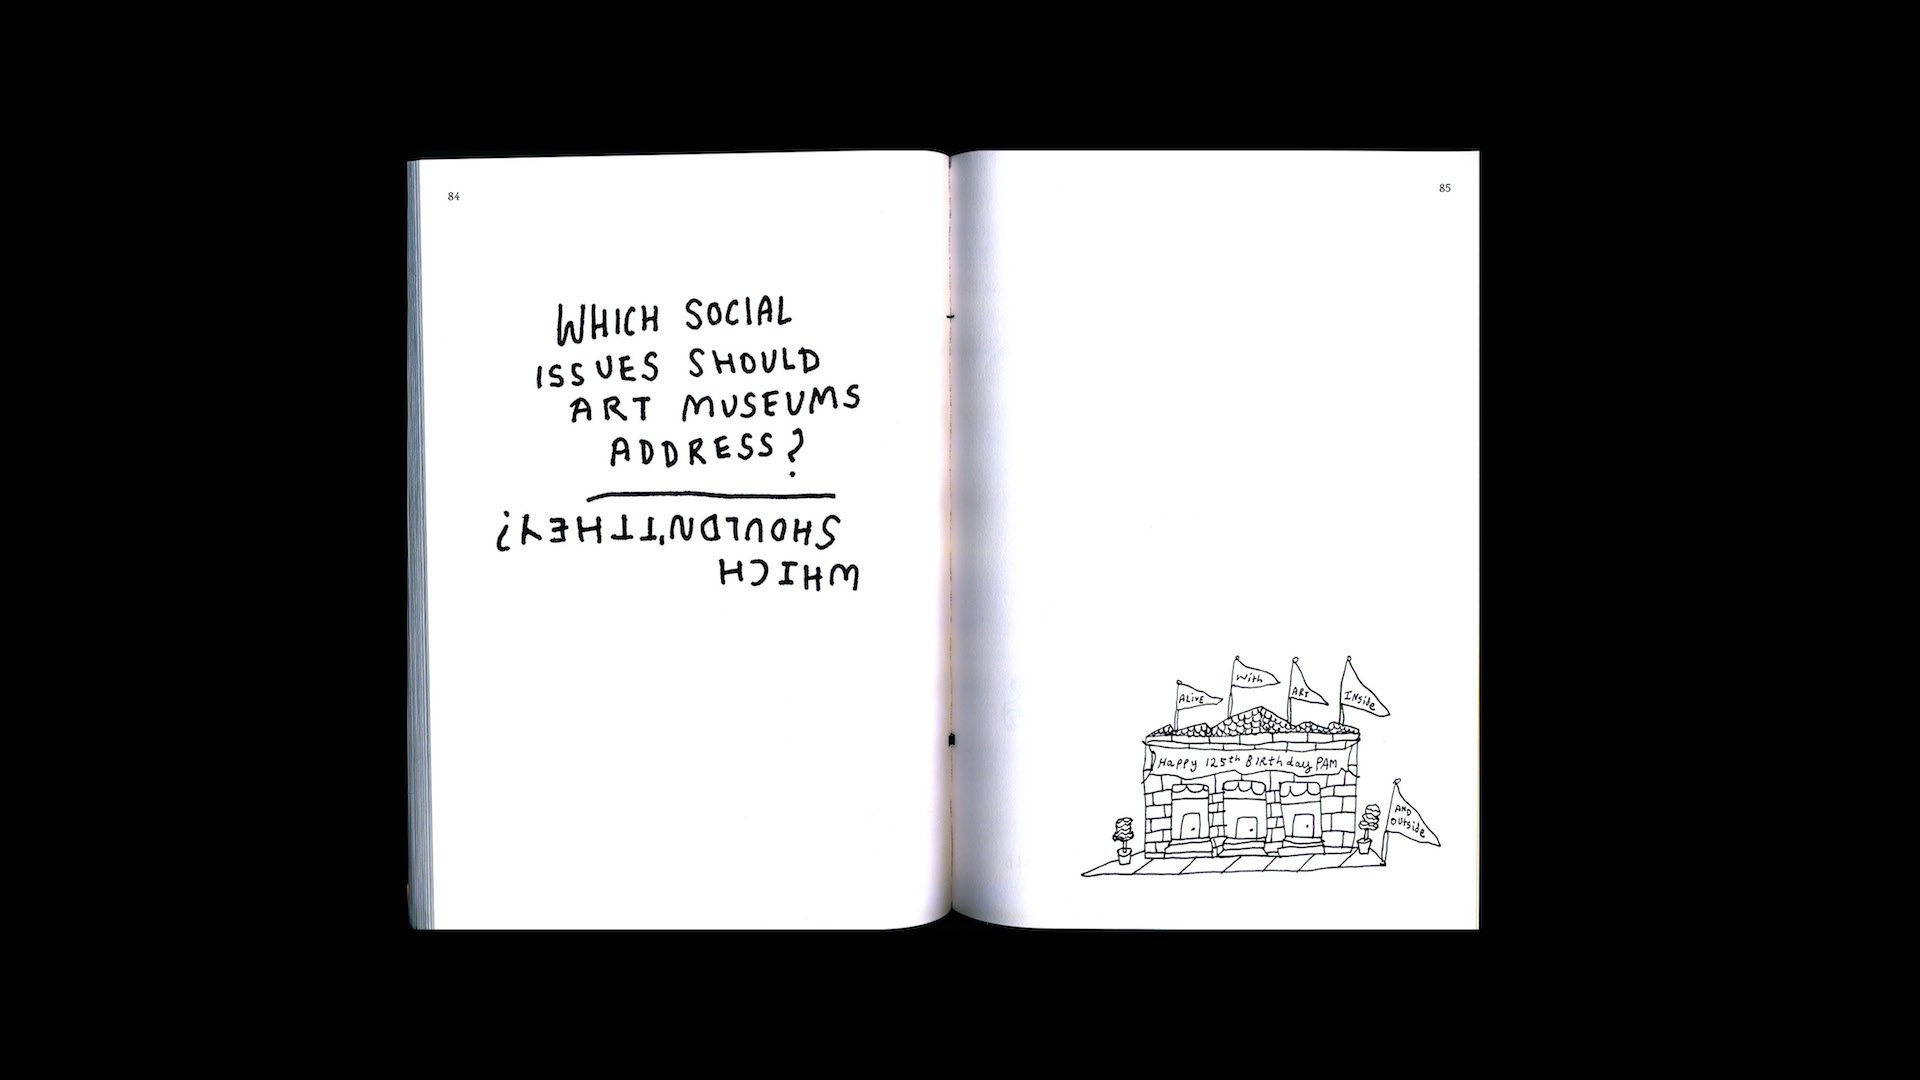 84
WHICH SOCIAL
ISSUES SHOULD
ART MUSEUMS
ADDRESS?
WHICH
SHOULDN'T THEY?
85
ALiVE
With
ART
INside
Happy 125th BIRthday PAM
AND
OUtside